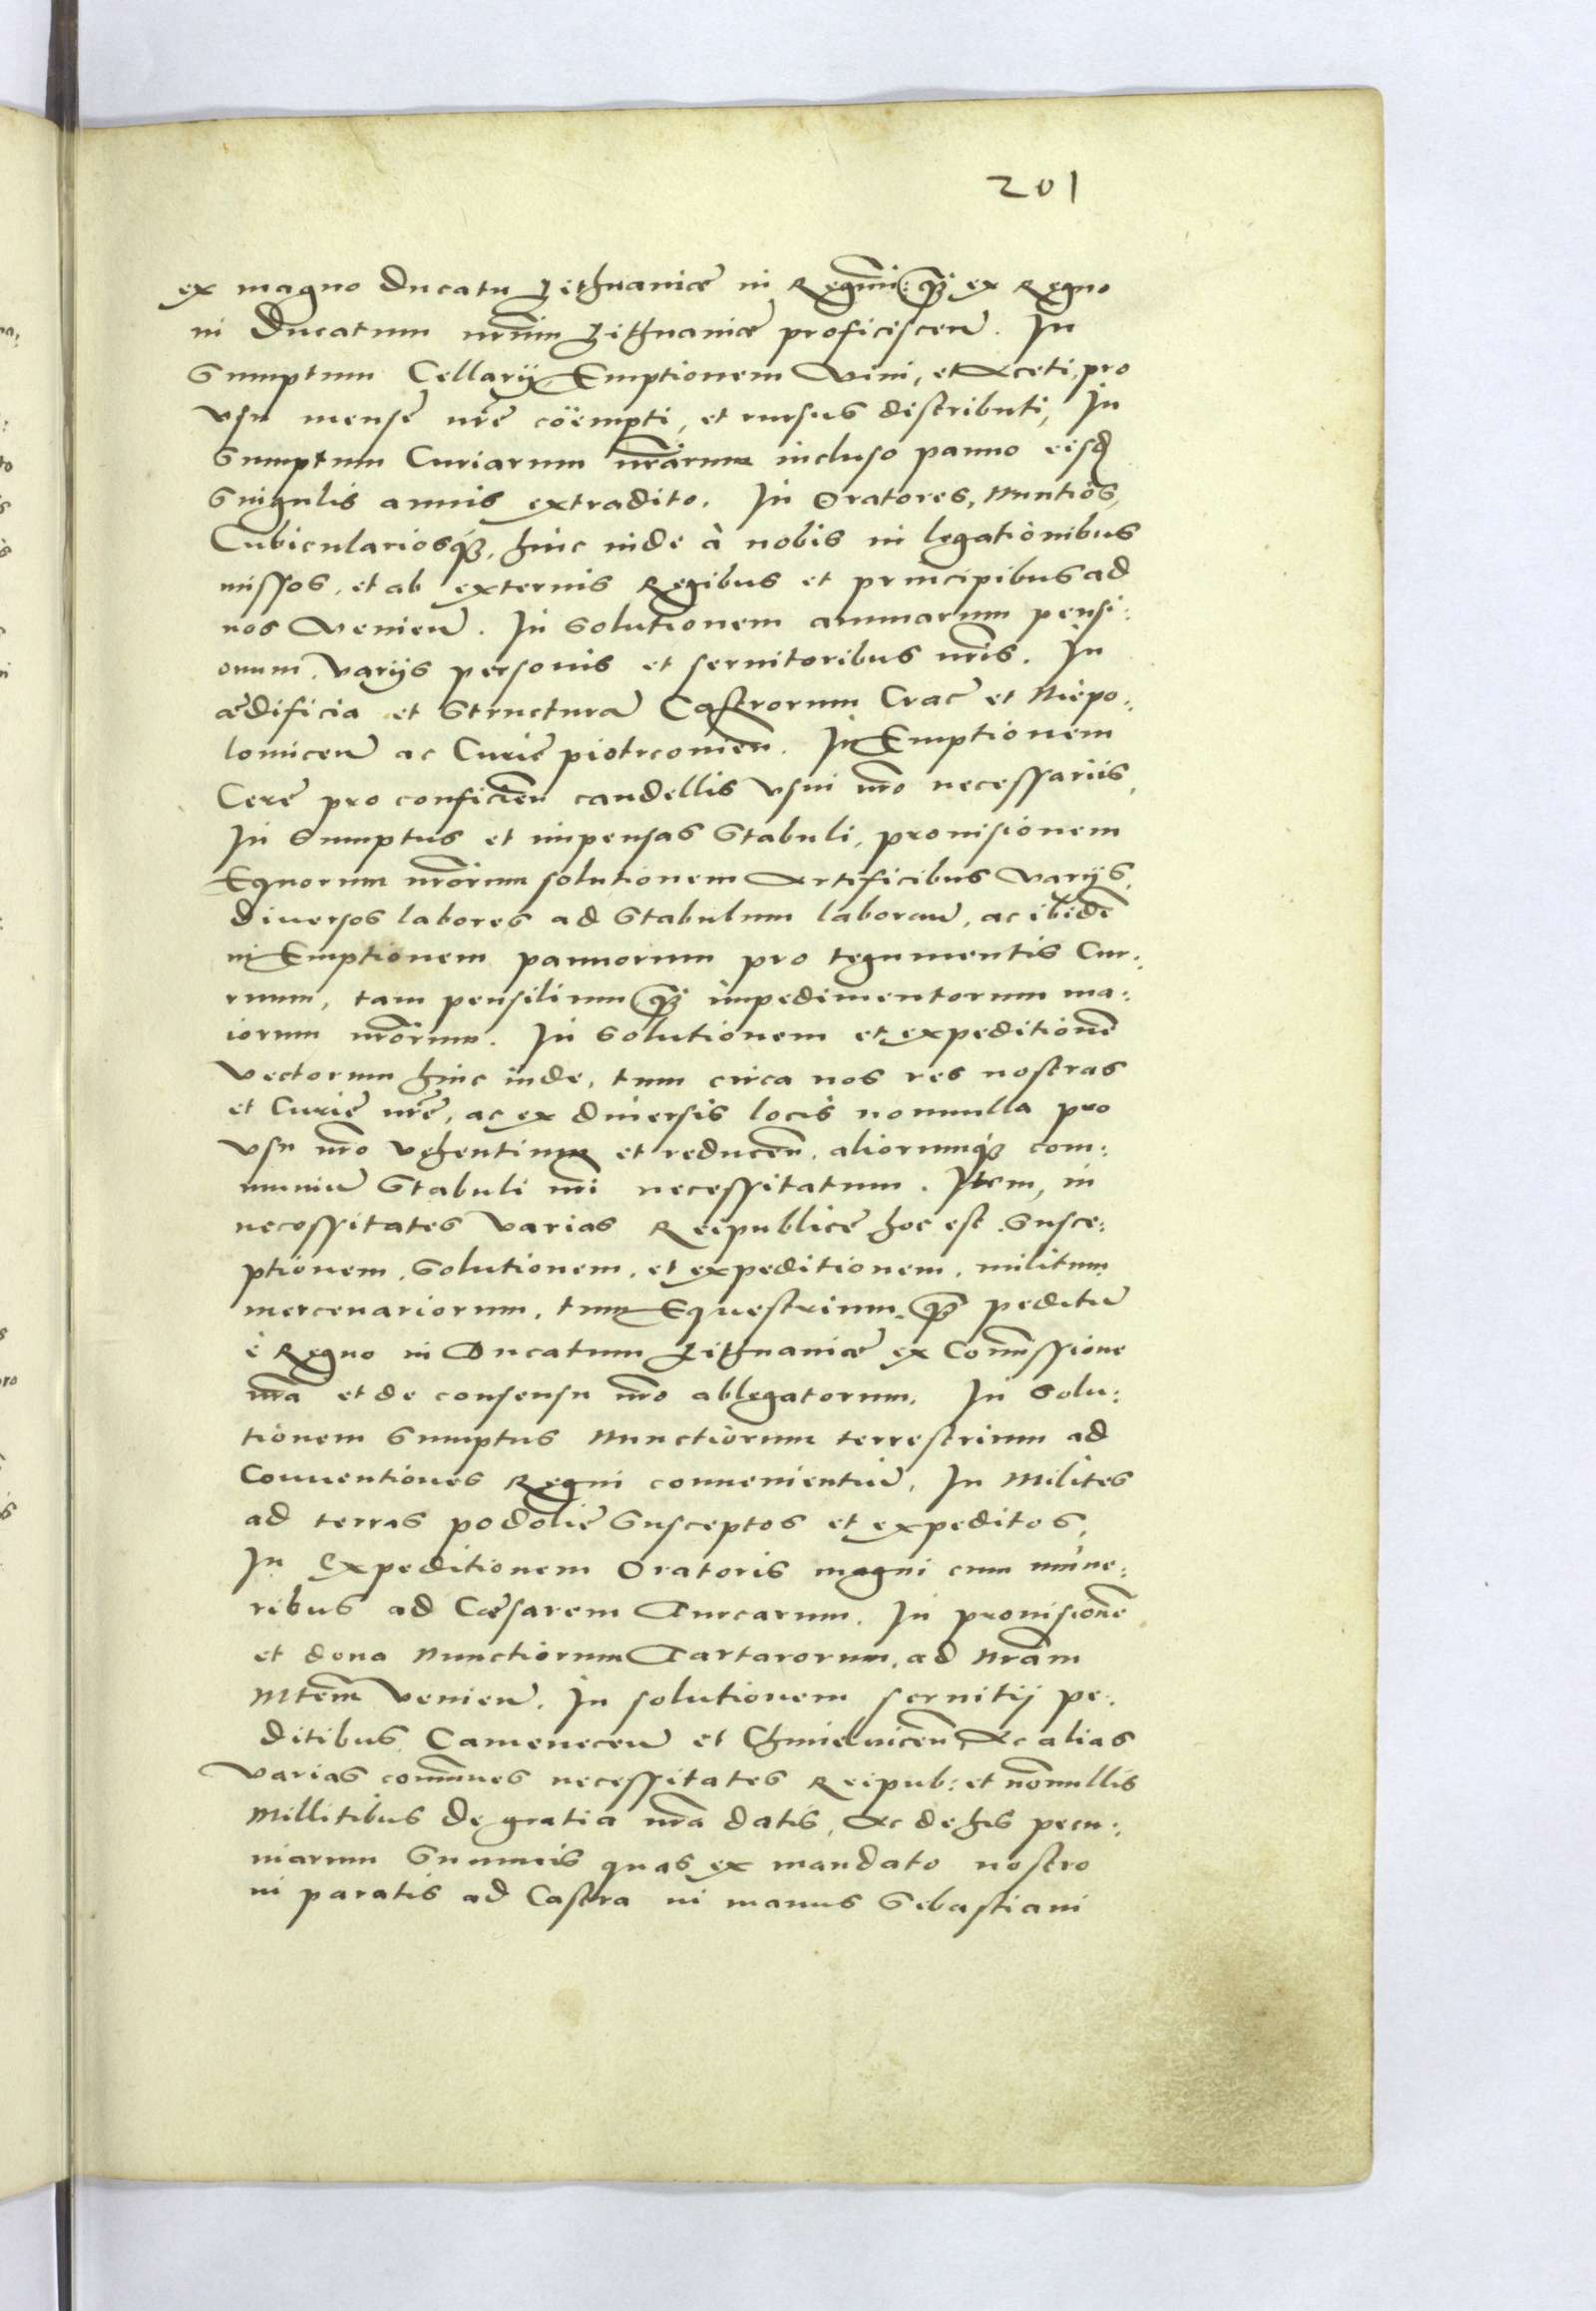 201
ex magno Ducatu Lithuaniæ in Regnū: q̃ ex Regno
in Ducatum nrūm Lithuaniæ proficisceñ. In
Sumptum Cellarij Emptionem Vini, et Aceti, pro
vsu mense nrē cöempti, et rursus distributi, In
Sumptum Curiarum nrārum incluso panno eisd
Singulis annis extradito. In Oratores, Nuntios,
Cubiculariosq3, hinc inde à nobis in legationibus
missos, et ab externis Regibus et principibus ad
nos Venieñ. In Solutionem annuarum pensi:
onum, varijs personis et seruitoribus nrīs. In
ædificia et Structurā Castrorum Crac̄ et Niepo:
lomiceñ ac Curiē piotrconieñ. In Emptionem
Cerē pro conficieñ candellis vsui nrō necessariis,
In Sumptus et impensas Stabuli, prouisionem
Equorum nrōrum solutionem Artificibus Varijs,
diuersos labores ad Stabulum laborañ, ac ibidē
in Emptionem pannorum pro tegumentis Cur:
ruum, tam pensilium q̃ impedimentorum ma:
iorum nrōrum. In Solutionem et expeditionē
vectorum hinc inde, tum circa nos res nostras
et Curiē nrē, ac ex diuersis locis nonnulla pro
vsu nrō vehentium et reduceñ, aliorumq3 com:
muniū Stabuli nrī necessitatum. Item, in
necessitates varias Reipublicē hoc est Susce:
ptionem, Solutionem, et expeditionem, militum
mercenariorum, tum Equestrium, q̃ peditū
è Regno in Ducatum Lithuaniæ ex Com̄issione
nrā et de consensu nrō ablegatorum. In Solu:
tionem Sumptus Nunctiorum terrestrium ad
Conuentiones Regni conuenientiū. In Milites
ad terras podoliē Susceptos et expeditos,
In Expeditionem Oratoris magni cum mune:
ribus ad Cæsarem Turcarum. In prouisionē
et dona Nunctiorum Tartarorum, ad Nrām
Mtēm Venieñ. In solutionem seruitij pe:
ditibus Cameneceñ et Chmielniceñ, Ac alias
Varias com̄unes necessitates Reipub: et nōnullis
Millitibus de gratia nrā datis, Ac de his pecu:
niarum Summis quas ex mandato nostro
in paratis ad Castra in manus Sebastiani